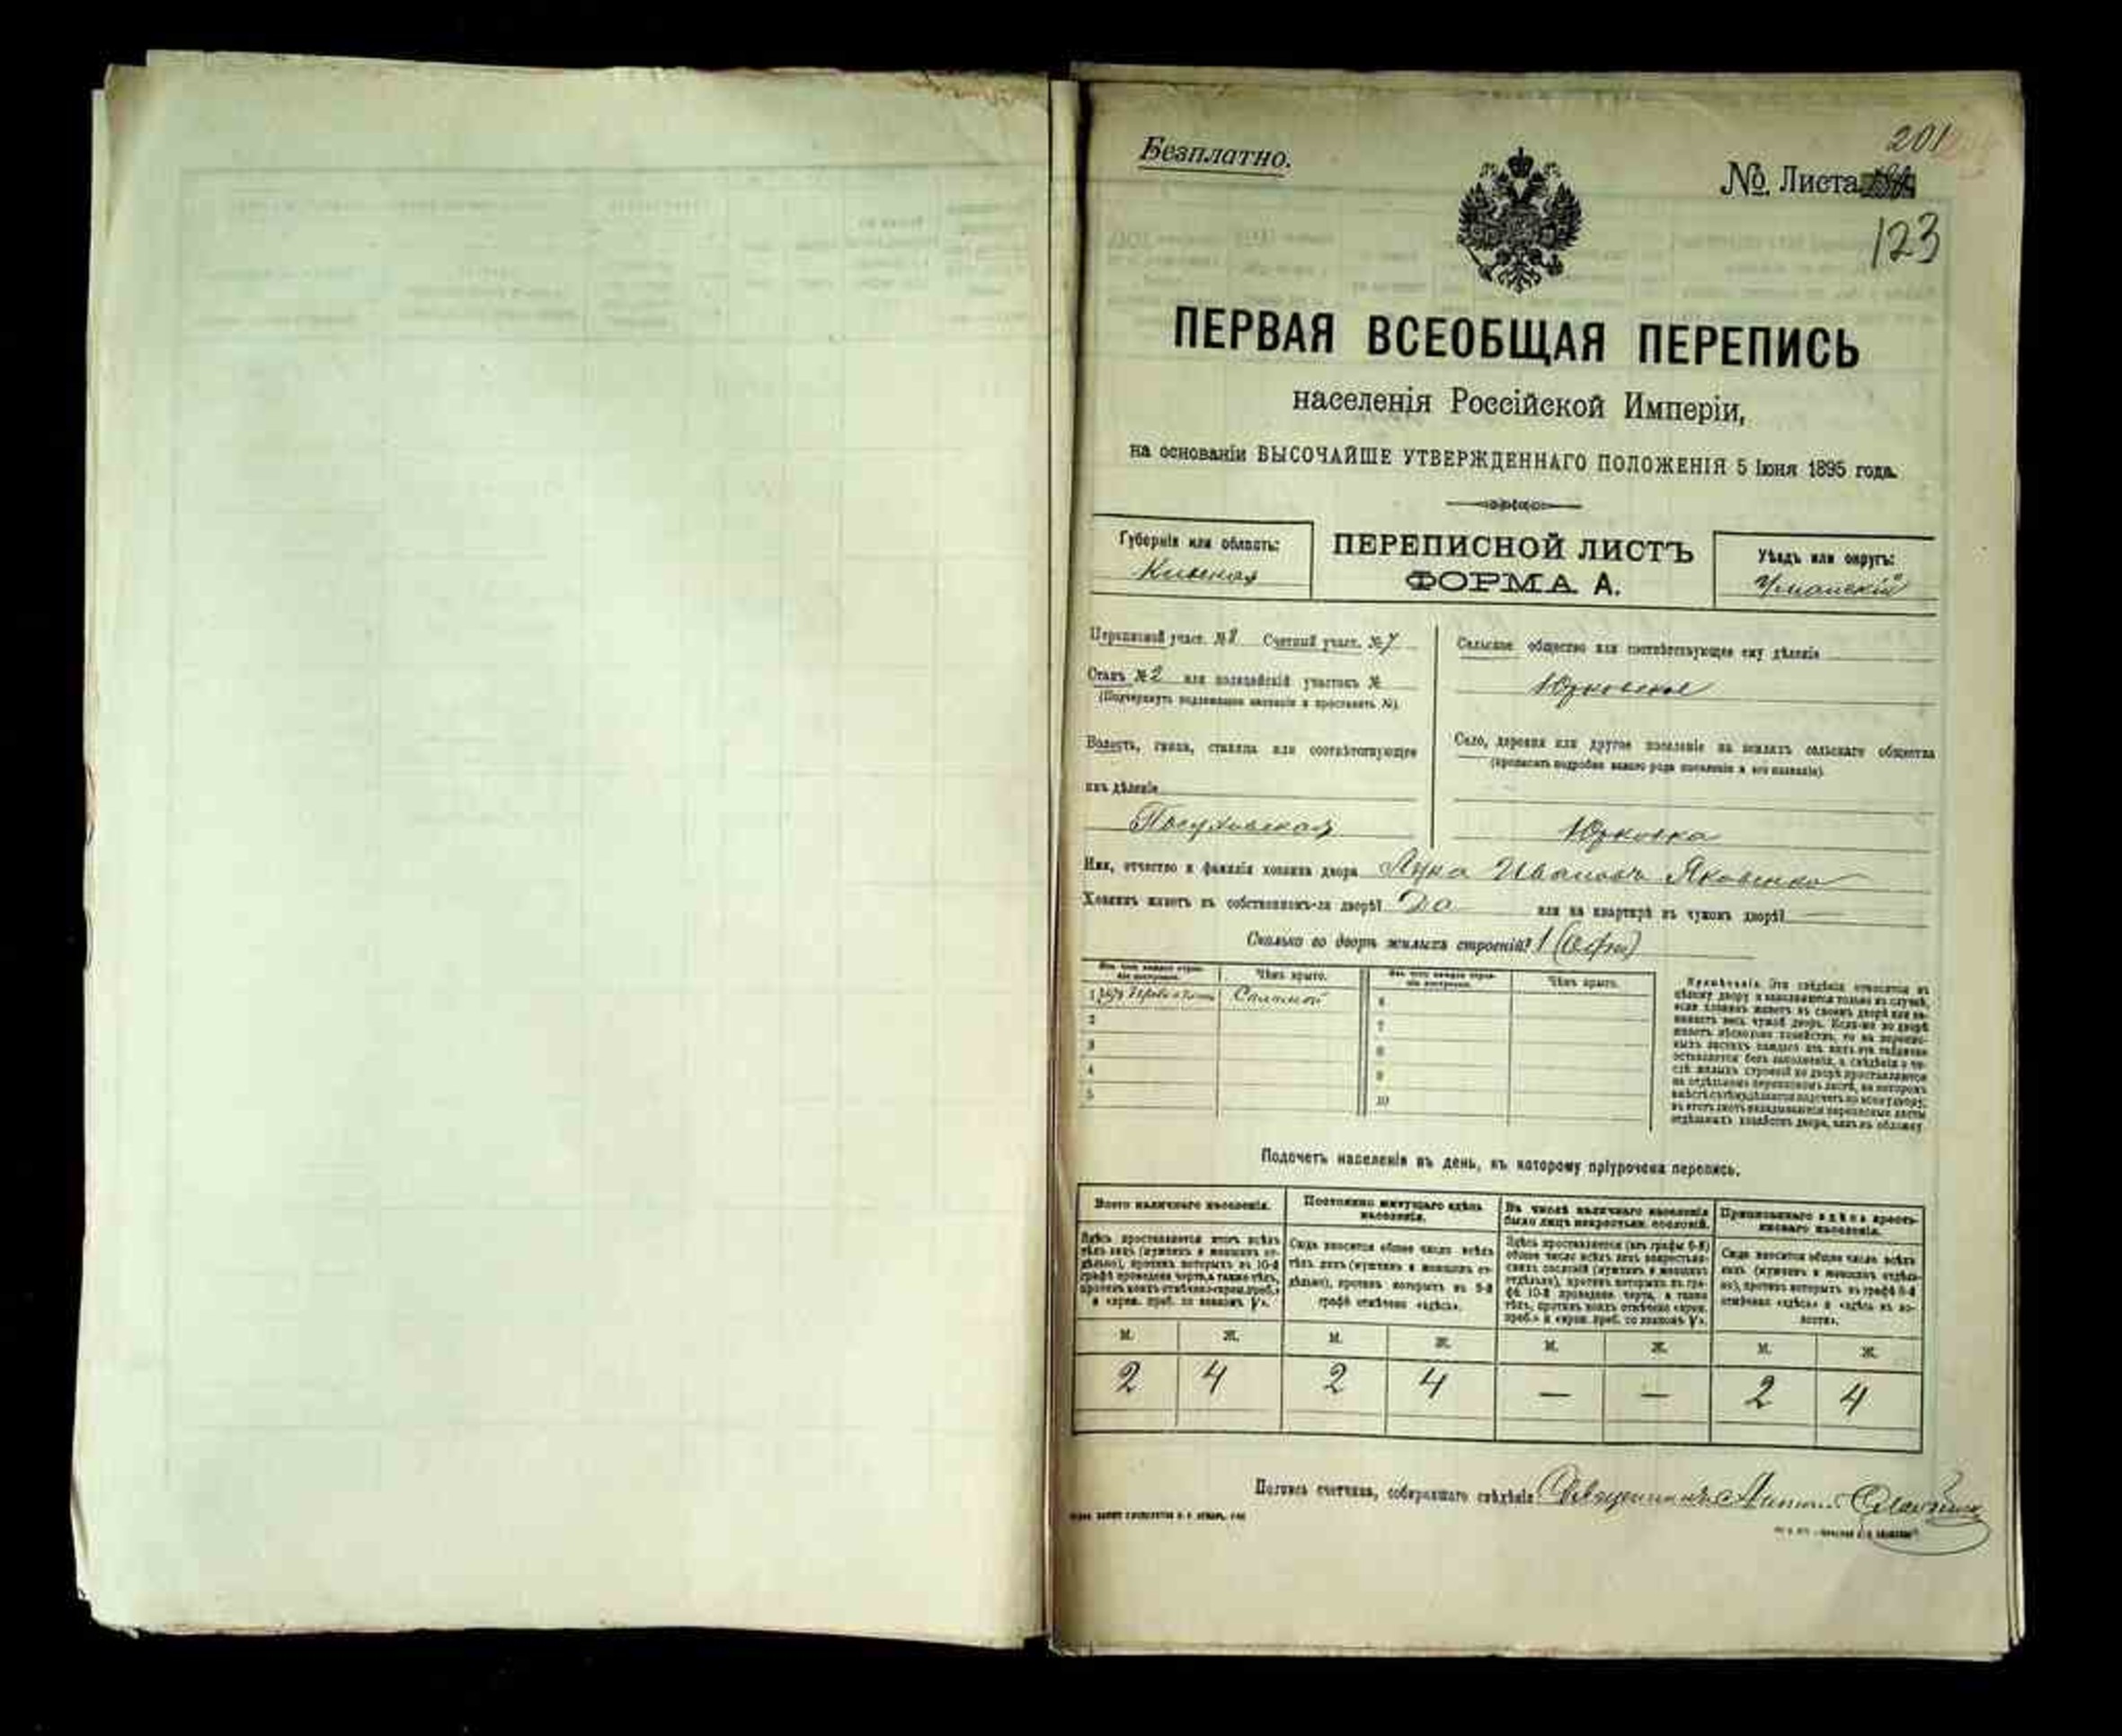 201
Безплатно.
№ Листа
123
ПЕРВАЯ ВСЕОБЩАЯ ПЕРЕПИСЬ
населенія Россійской Имперіи,
на основаніи ВЫСОЧАЙШЕ УТВЕРЖДЕННАГО ПОЛОЖЕНІЯ 5 Іюня 1895 года.
Губернія или область:
Кіевская
ПЕРЕПИСНОЙ ЛИСТЪ
ФОРМА А.
Уѣздъ или округъ:
Уманскій
Переписной участ. № 8 Счетный участ. № 7
Станъ № 2 или полицейскій участокъ №
(Подчеркнуть подлежащее названіе и проставить №).
Волость, гмина, станица или соотвѣтствующее
имъ дѣленіе
Посуховская
Сельское общество или соотвѣтствующее ему дѣленіе
Юрковское
Село, деревня или другое поселеніе на земляхъ сельскаго общества
(прописать подробно какого рода поселеніе и его названіе).
Юрковка
Имя, отчество и фамилія хозяина двора Лука Ивановъ Яковенко
Хозяинъ живетъ въ собственномъ-ли дворѣ? Да или на квартирѣ въ чужомъ дворѣ? —
Сколько во дворѣ жилыхъ строеній? 1 (один)
Изъ чего каждое строеніе построено. Чѣмъ крыто. Изъ чего каждое строеніе построено. Чѣмъ крыто.
1 Соломой 6
2 7
3 8
4 9
5 10
Примѣчаніе. Эти свѣдѣнія относятся къ
цѣлому двору и заполняются только въ случаѣ,
если хозяинъ живетъ въ своемъ дворѣ или занимаетъ весь чужой дворъ. Если-же во дворѣ
живетъ нѣсколько хозяйствъ, то на переписныхъ листахъ каждаго изъ нихъ эти свѣдѣнія
оставляются безъ заполненія, а свѣдѣнія о числѣ жилыхъ строеній во дворѣ проставляются
на отдѣльномъ переписномъ листѣ, на которомъ
вмѣстѣ съ тѣмъ дѣлается подсчетъ по всему двору;
въ этотъ листъ вкладываются переписные листы
отдѣльныхъ хозяйствъ двора, какъ въ обложку.
Подсчетъ населенія въ день, къ которому пріурочена перепись.
Всего наличнаго населенія.
Здѣсь проставляется итогъ всѣхъ
тѣхъ лицъ (мужчинъ и женщинъ отдѣльно), противъ которыхъ въ 10-й
графѣ проведена черта, а также тѣхъ,
противъ коихъ отмѣчено «врем. преб.»
и «врем. преб. со знакомъ V».
Постоянно живущаго здѣсь
населенія.
Сюда вносится общее число всѣхъ
тѣхъ лицъ (мужчинъ и женщинъ отдѣльно), противъ которыхъ въ 9-й
графѣ отмѣчено «здѣсь».
Въ числѣ наличнаго населенія
было лицъ некрестьян. сословій.
Здѣсь проставляется (изъ графы 6-й)
общее число всѣхъ лицъ некрестьянскихъ сословій (мужчинъ и женщинъ
отдѣльно), противъ которыхъ въ графѣ 10-й проведена черта, а также
тѣхъ, противъ коихъ отмѣчено «врем.
преб.» и «врем. преб. со знакомъ V».
Приписаннаго здѣсь крестьянскаго населенія.
Сюда вносится общее число всѣхъ
лицъ (мужчинъ и женщинъ отдѣльно), противъ которыхъ въ графѣ 8-й
отмѣчено «здѣсь» и «здѣсь въ волости».
М. Ж. М. Ж. М. Ж. М. Ж.
2 4 2 4 — — 2 4
Подпись счетчика, собиравшаго свѣдѣнія Священникъ